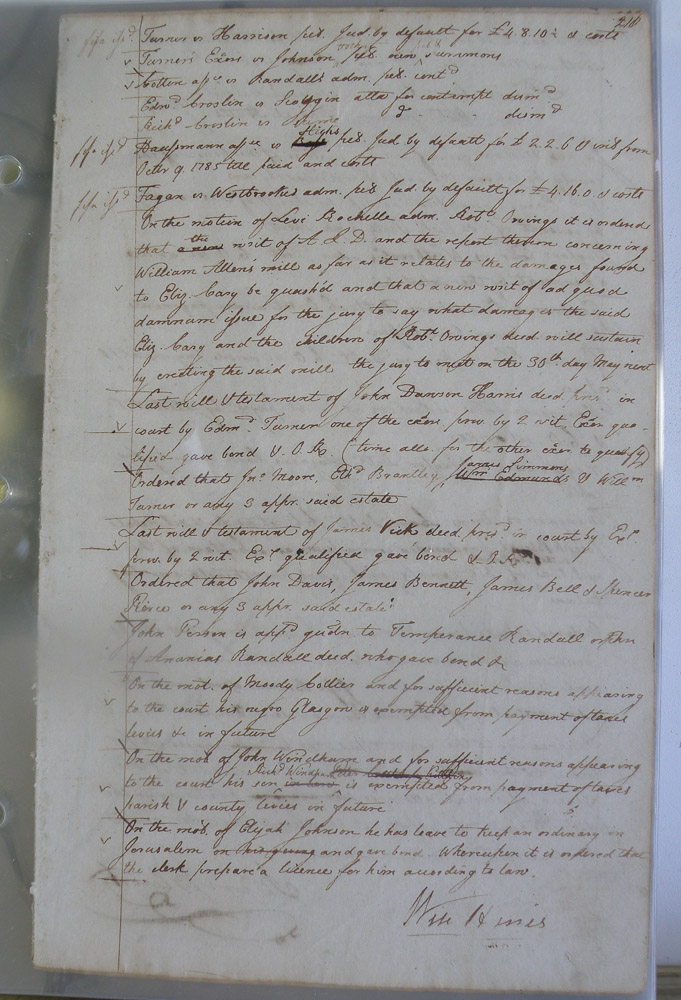 210
Turner vs Harrison pet. Jud. by default for £4.8.10½ & costs
Turner's Exors vs Johnson pet. new summons
Cotton assee vs Randall's adm. pet. contd
Edwd Croslin vs Scoggin atta for contempt dismd
Richd Croslin vs Same & dismd
fifa issd Baussmann assee vs Highs pet. Jud by default for £2.2.6 & int from
Octer 9. 1785 till paid and costs
fifa issd Fagan vs Westbrook's adm. pet Jud. by default for £4.16.0 & costs
On the motion of Levi Rochelle adm. Robt Owings it is ordered
that the writ of A. Q. D. and the report thereon concerning
William Allen's mill as far as it relates to the damages found
to Eliz. Cary be quash'd and that a new writ of ad quod
damnum issue for the jury to say what damages the said
Eliz. Cary and the children of Robt. Owings decd. will sustain
by erecting the said mill the jury to meet on the 30th day May next
Last will & testament of John Dawson Harris decd. presd in
court by Edmd. Turner one of the exors. prov. by 2 wit. Exor qua-
lified gave bond & O. R. (time allo. for the other exor to qualify)
Ordered that Jno. Moore, Ethd Brantley, James Simmons Wm Edmunds & Willm
Turner or any 3 appr. said estate
Last will & testament of James Vick decd. presd in court by Exr.
prov. by 2 wit. Exr. qualified gave bond & O. R.
Ordered that John Davis, James Bennett, James Bell & Spencer
Pierce or any 3 appr. said estate
John Person is appd gudn to Temperance Randall orphn
of Ananias Randall decd. who gave bond &
On the mot. of Moody Collier and for sufficient reasons appearing
to the court his negro Glasgow is exempted from payment of taxes
levies &c in future
On the mot of John Windham and for sufficient reasons appearing
to the court his son is exempted from payment of taxes
parish & county levies in future
On the mot. of Elijah Johnson he has leave to keep an ordinary in
Jerusalem on his giving and gave bond. Whereupon it is ordered that
the clerk prepare a licence for him according to law.
Wm Hines